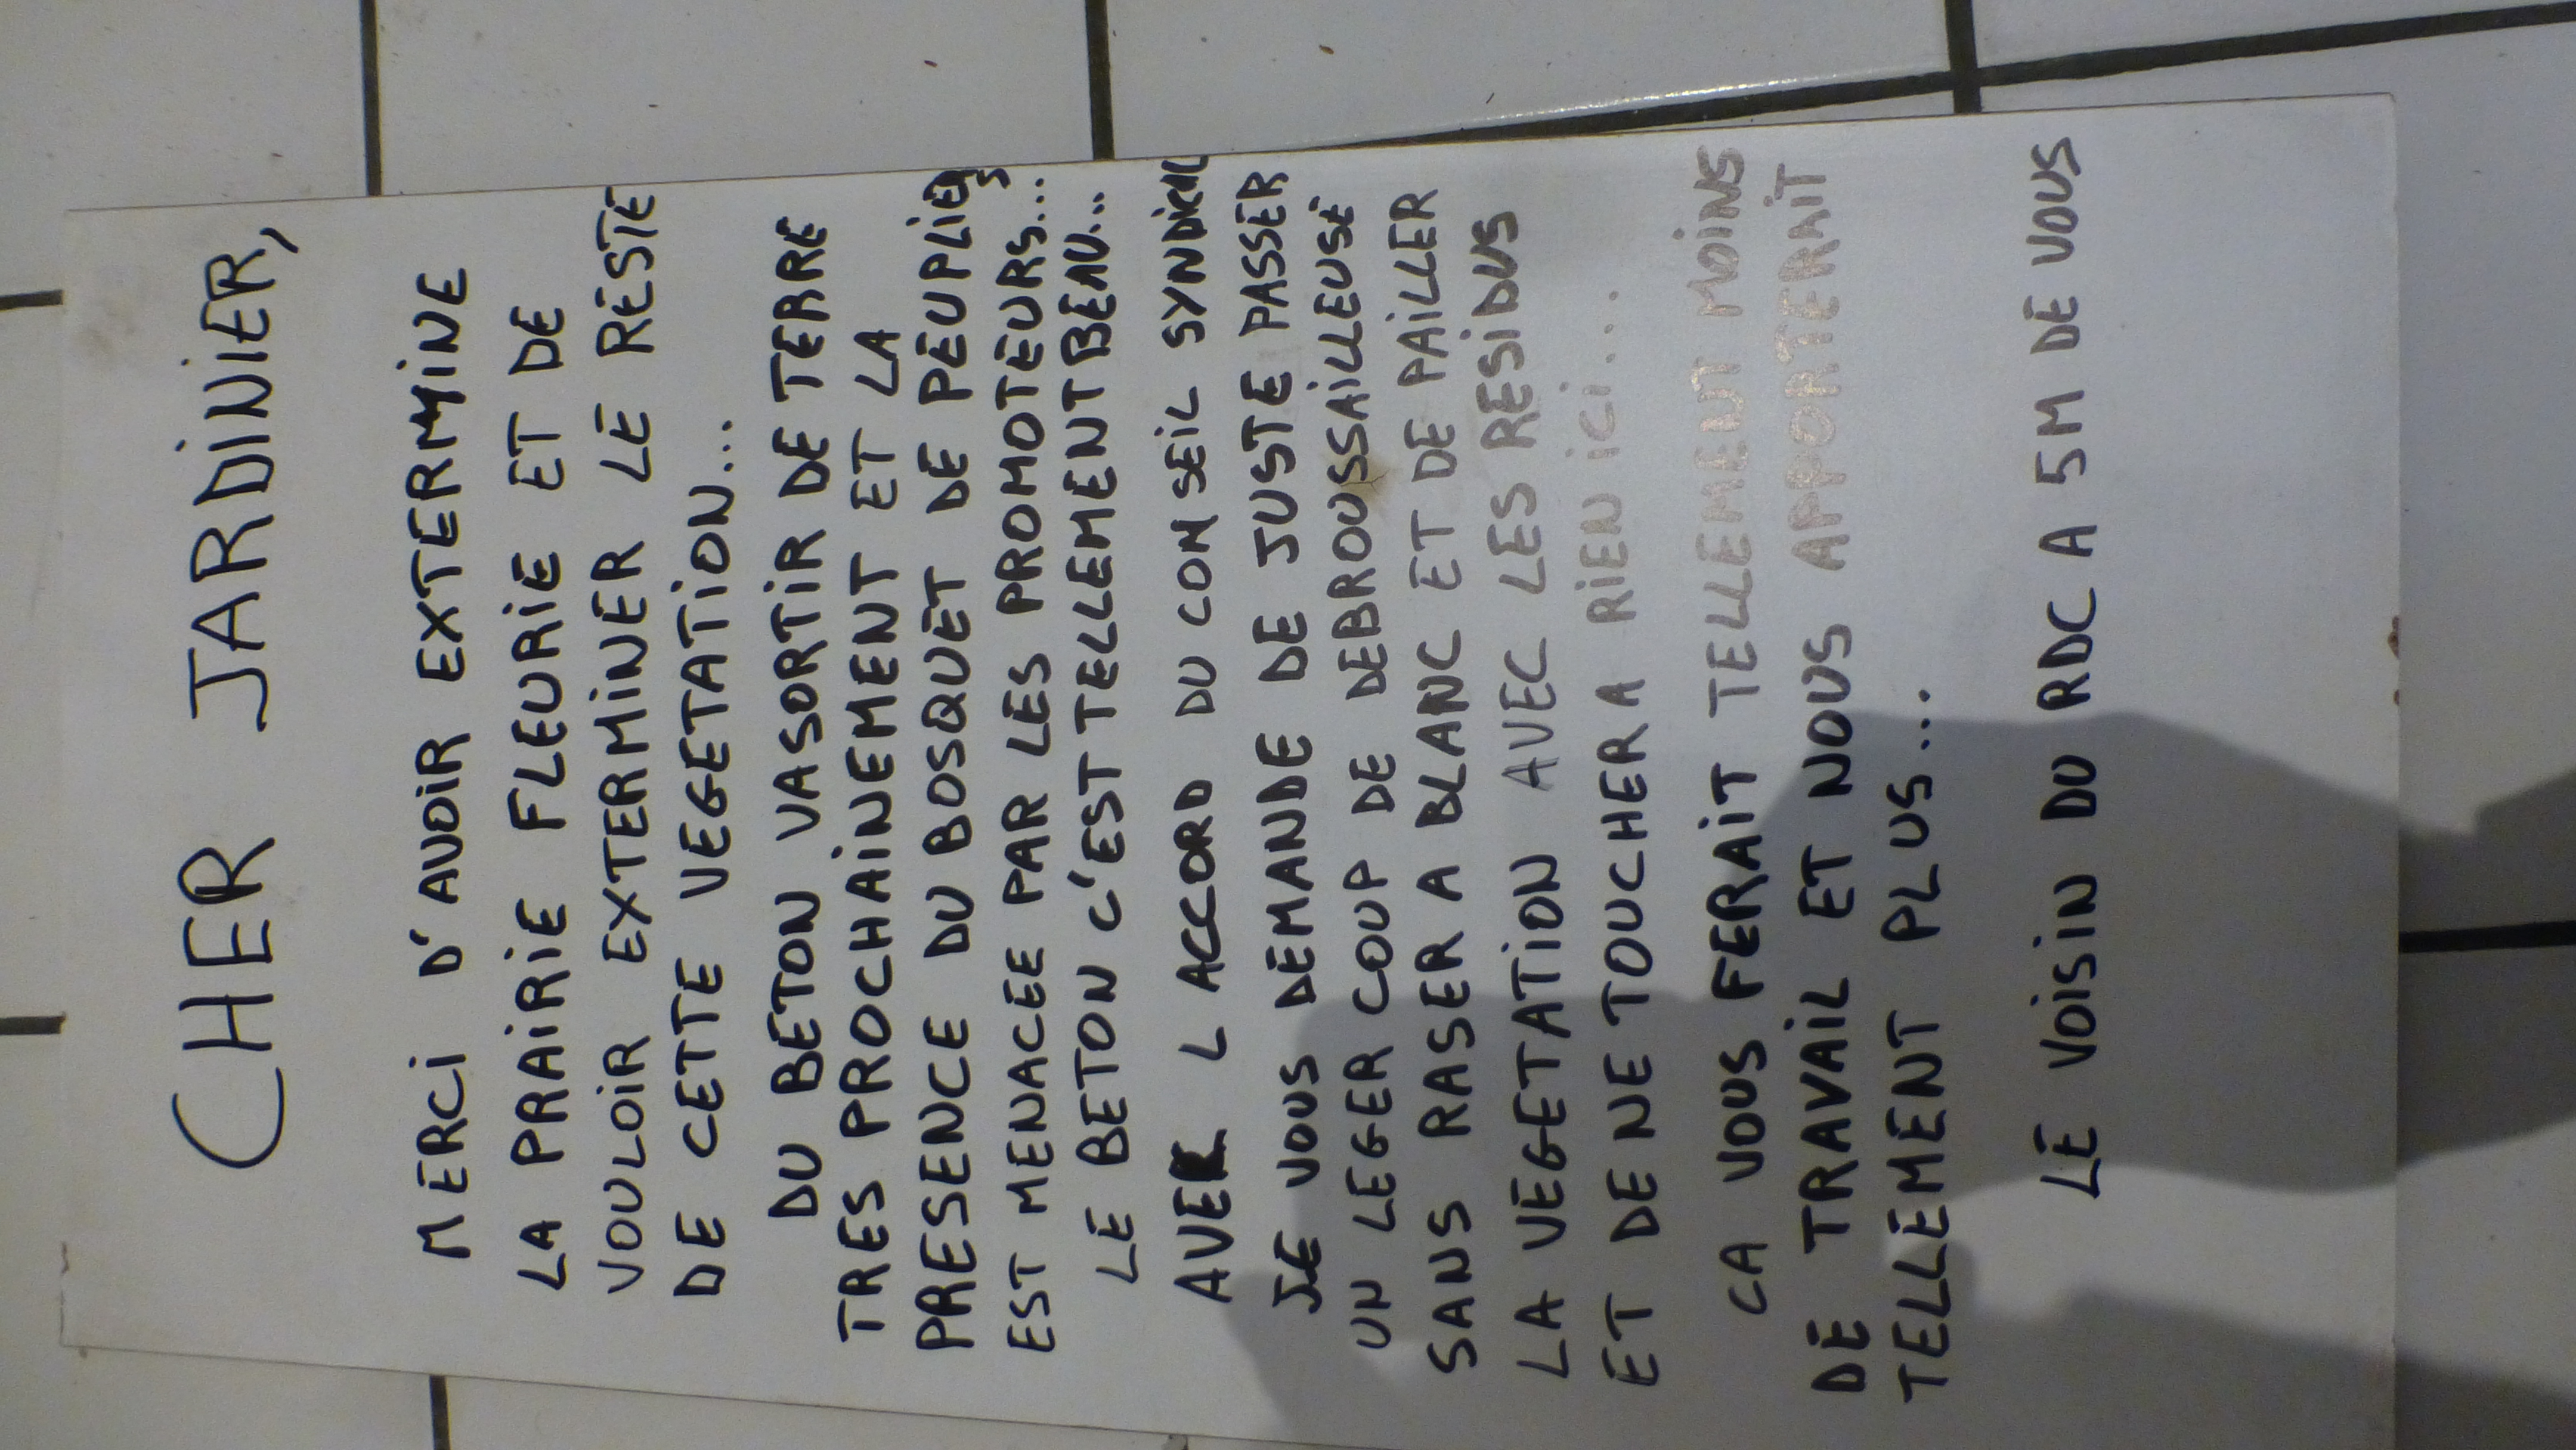 CHER JARDINIER,
MERCI D'AVOIR EXTERMINE
LA PRAIRIE FLEURIE ET DE
VOULOIR EXTERMINER LE RESTE
DE CETTE VEGETATION...
DU BETON VA SORTIR DE TERRE
TRES PROCHAINEMENT ET LA
PRESENCE DU BOSQUET DE PEUPLIERS
EST MENACEE PAR LES PROMOTEURS...
LE BETON C'EST TELLEMENT BEAU...
AVEC L ACCORD DU CONSEIL SYNDICAL
JE VOUS DEMANDE DE JUSTE PASSER
UN LEGER COUP DE DEBROUSSAILLEUSE
SANS RASER A BLANC ET DE PAILLER
LA VEGETATION AVEC LES RESIDUS
ET DE NE TOUCHER A RIEN ICI...
CA VOUS FERAIT TELLEMENT MOINS
DE TRAVAIL ET NOUS APPORTERAIT
TELLEMENT PLUS...
LE VOISIN DU RDC A 5M DE VOUS